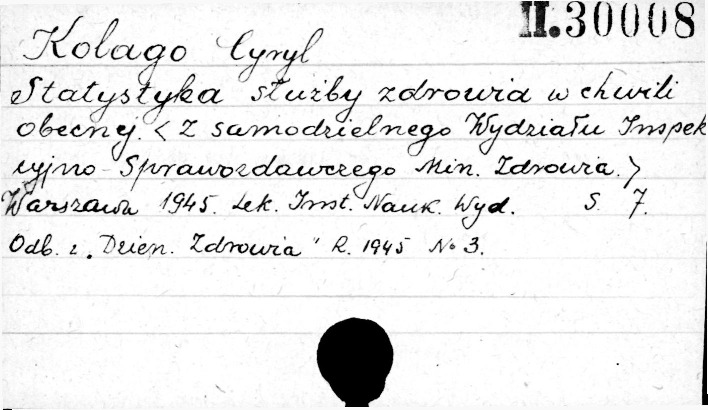 II.30008
Kolago Cyryl
Statystyka służby zdrowia w chwili
obecnej. < Z samodzielnego Wydziału Inspek
cyjno-Sprawozdawczego Min. Zdrowia. >
Warszawa 1945. Lek. Inst. Nauk. Wyd. S. 7.
Odb. z „Dzien. Zdrowia" R. 1945 No 3.